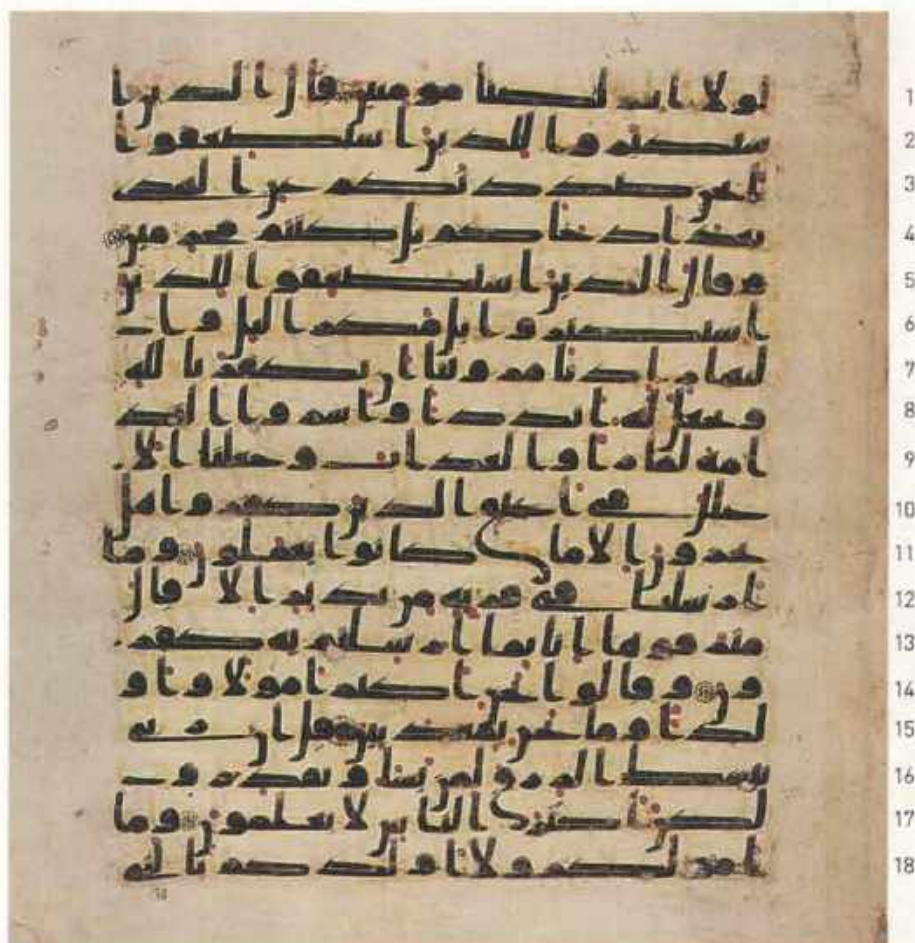 1 لولا انتم لكنا مومنين قال الذين ا
2 ستكبروا للذين استضعفوا
3 انحن صددنكم عن الهدى
4 بعد اذ جاكم بل كنتم مجرمين
5 وقال الذين استضعفوا للذين
6 استكبروا بل مكر اليل وا
7 لنهار اذ تامروننا ان نكفر بالله
8 ونجعل له اندادا واسروا الند
9 امة لما راوا العذاب وجعلنا الا
10 غلل في اعناق الذين كفروا هل
11 يجزون الا ما كانوا يعملون وما
12 ارسلنا في قرية من نذير الا قال
13 مترفوها انا بما ارسلتم به كفر
14 ون وقالوا نحن اكثر امولا واو
15 لدا وما نحن بمعذبين قل ان ربي
16 يبسط الرزق لمن يشا ويقدر و
17 لكن اكثر الناس لا يعلمون وما
18 امولكم ولا اولدكم بالتي